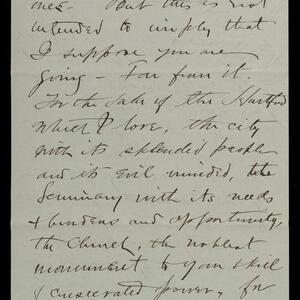 ones - But this is not
intended to imply that
I suppose you are
going - Far from it.
For the sake of the Hartford
which I love, the city
with its splendid people
and its evil minded, the
Seminary with its needs
& burdens and opportunity,
the Church, the noblest
monument to your skill
& consecrated power, for